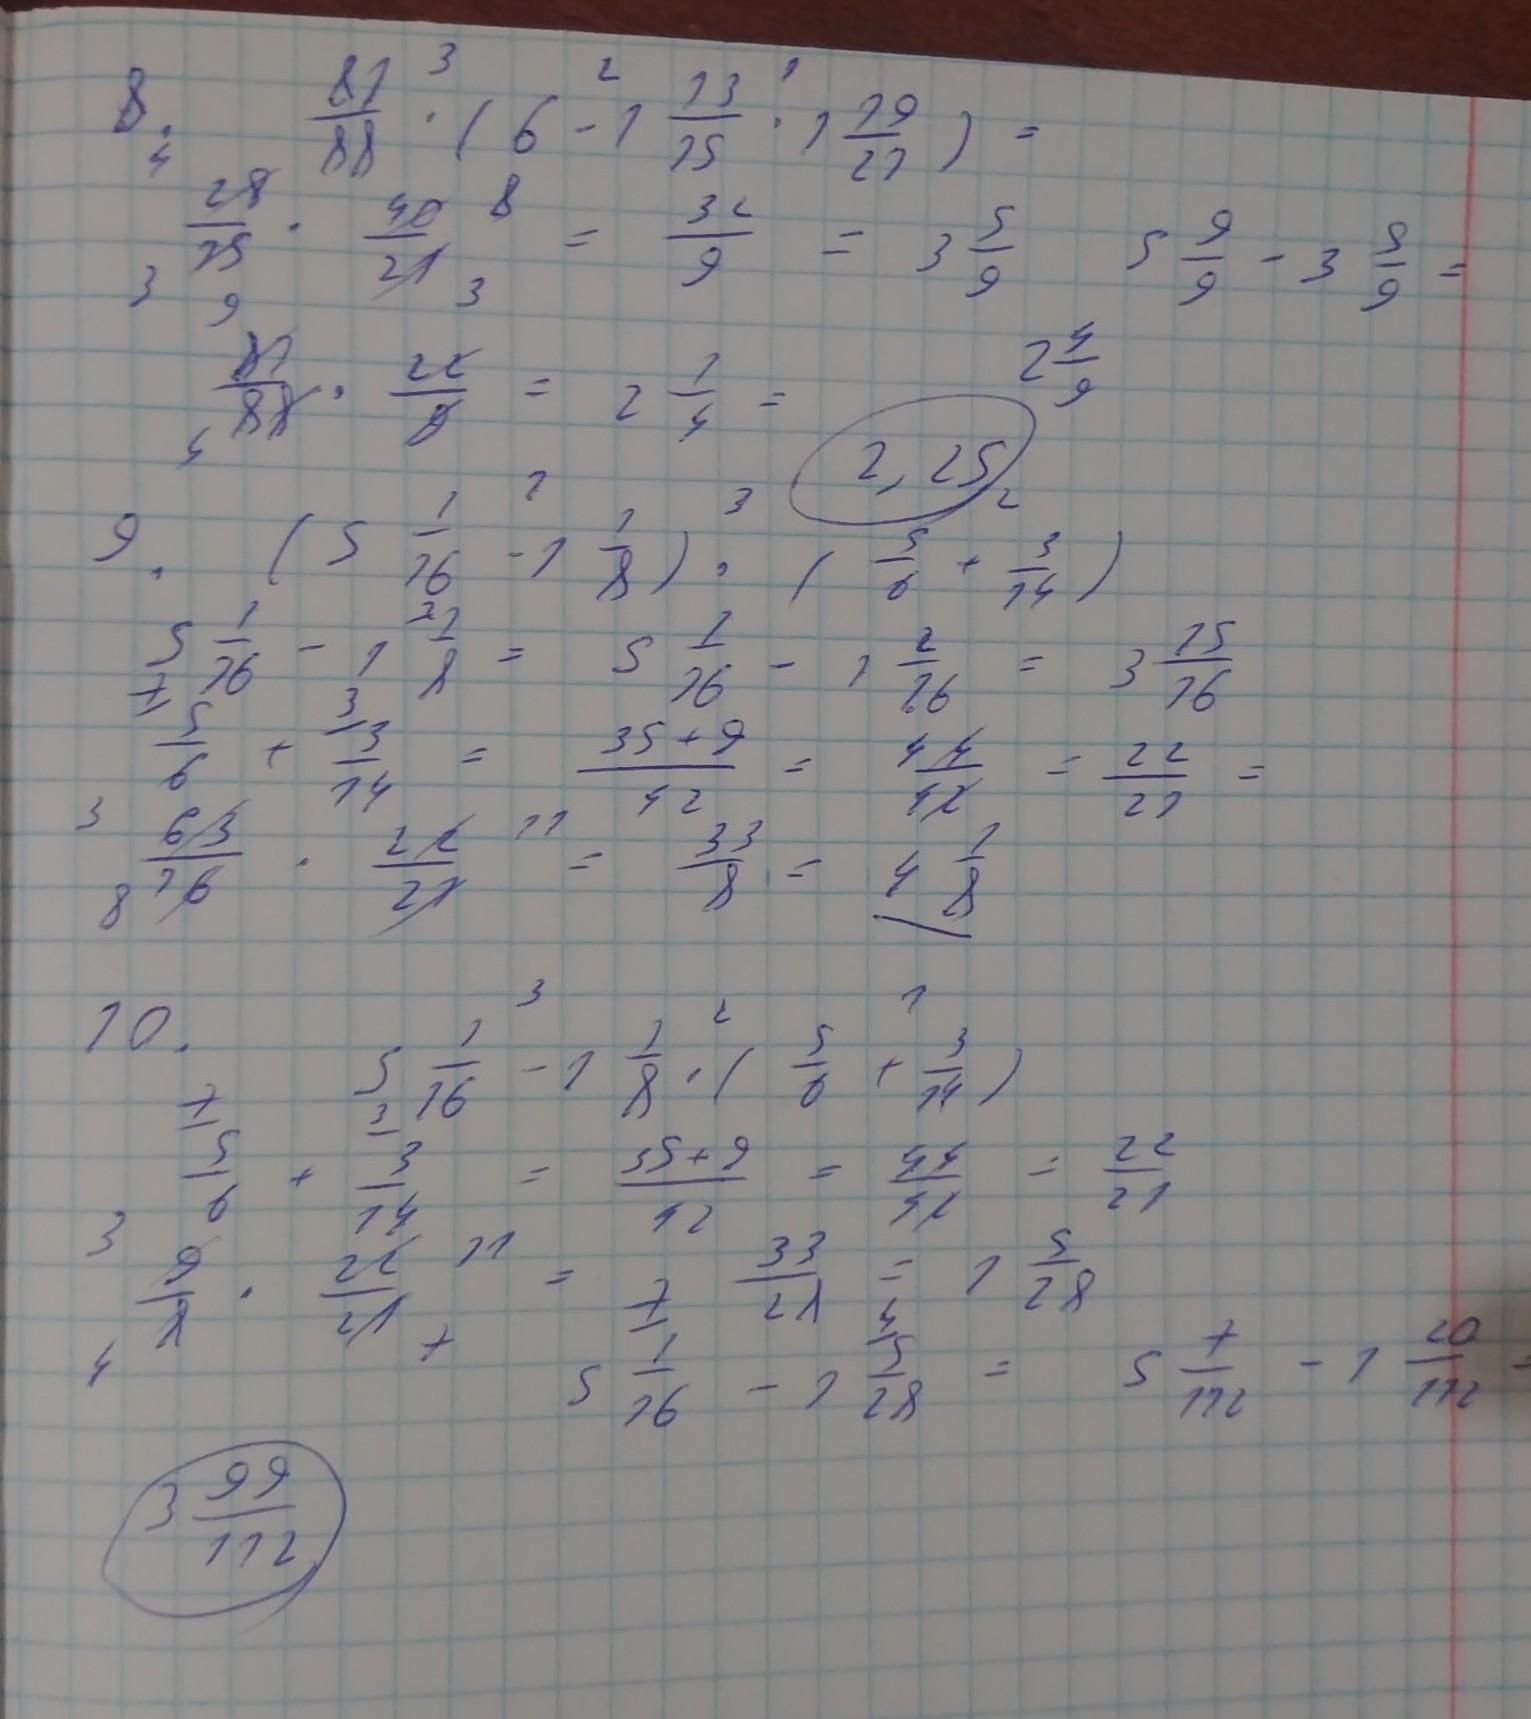 8. 81/88 · ( 6 - 1 13/15 · 1 19/21 ) =
28/15 · 40/21 = 32/9 = 3 5/9 5 9/9 - 3 5/9 =
2 4/9
81/88 · 22/9 = 2 1/4 =
2,25
9. ( 5 1/16 - 1 1/8 ) · ( 5/6 + 3/14 )
5 1/16 - 1 1/8 = 5 1/16 - 1 2/16 = 3 15/16
5/6 + 3/14 = 35+9/42 = 44/42 = 22/21 =
63/16 · 22/21 = 33/8 = 4 1/8
10.
5 1/16 - 1 1/8 · ( 5/6 + 3/14 )
5/6 + 3/14 = 35+9/42 = 44/42 = 22/21
9/8 · 22/21 = 33/28 = 1 5/28
5 1/16 - 1 5/28 = 5 7/112 - 1 20/112 =
3 99/112